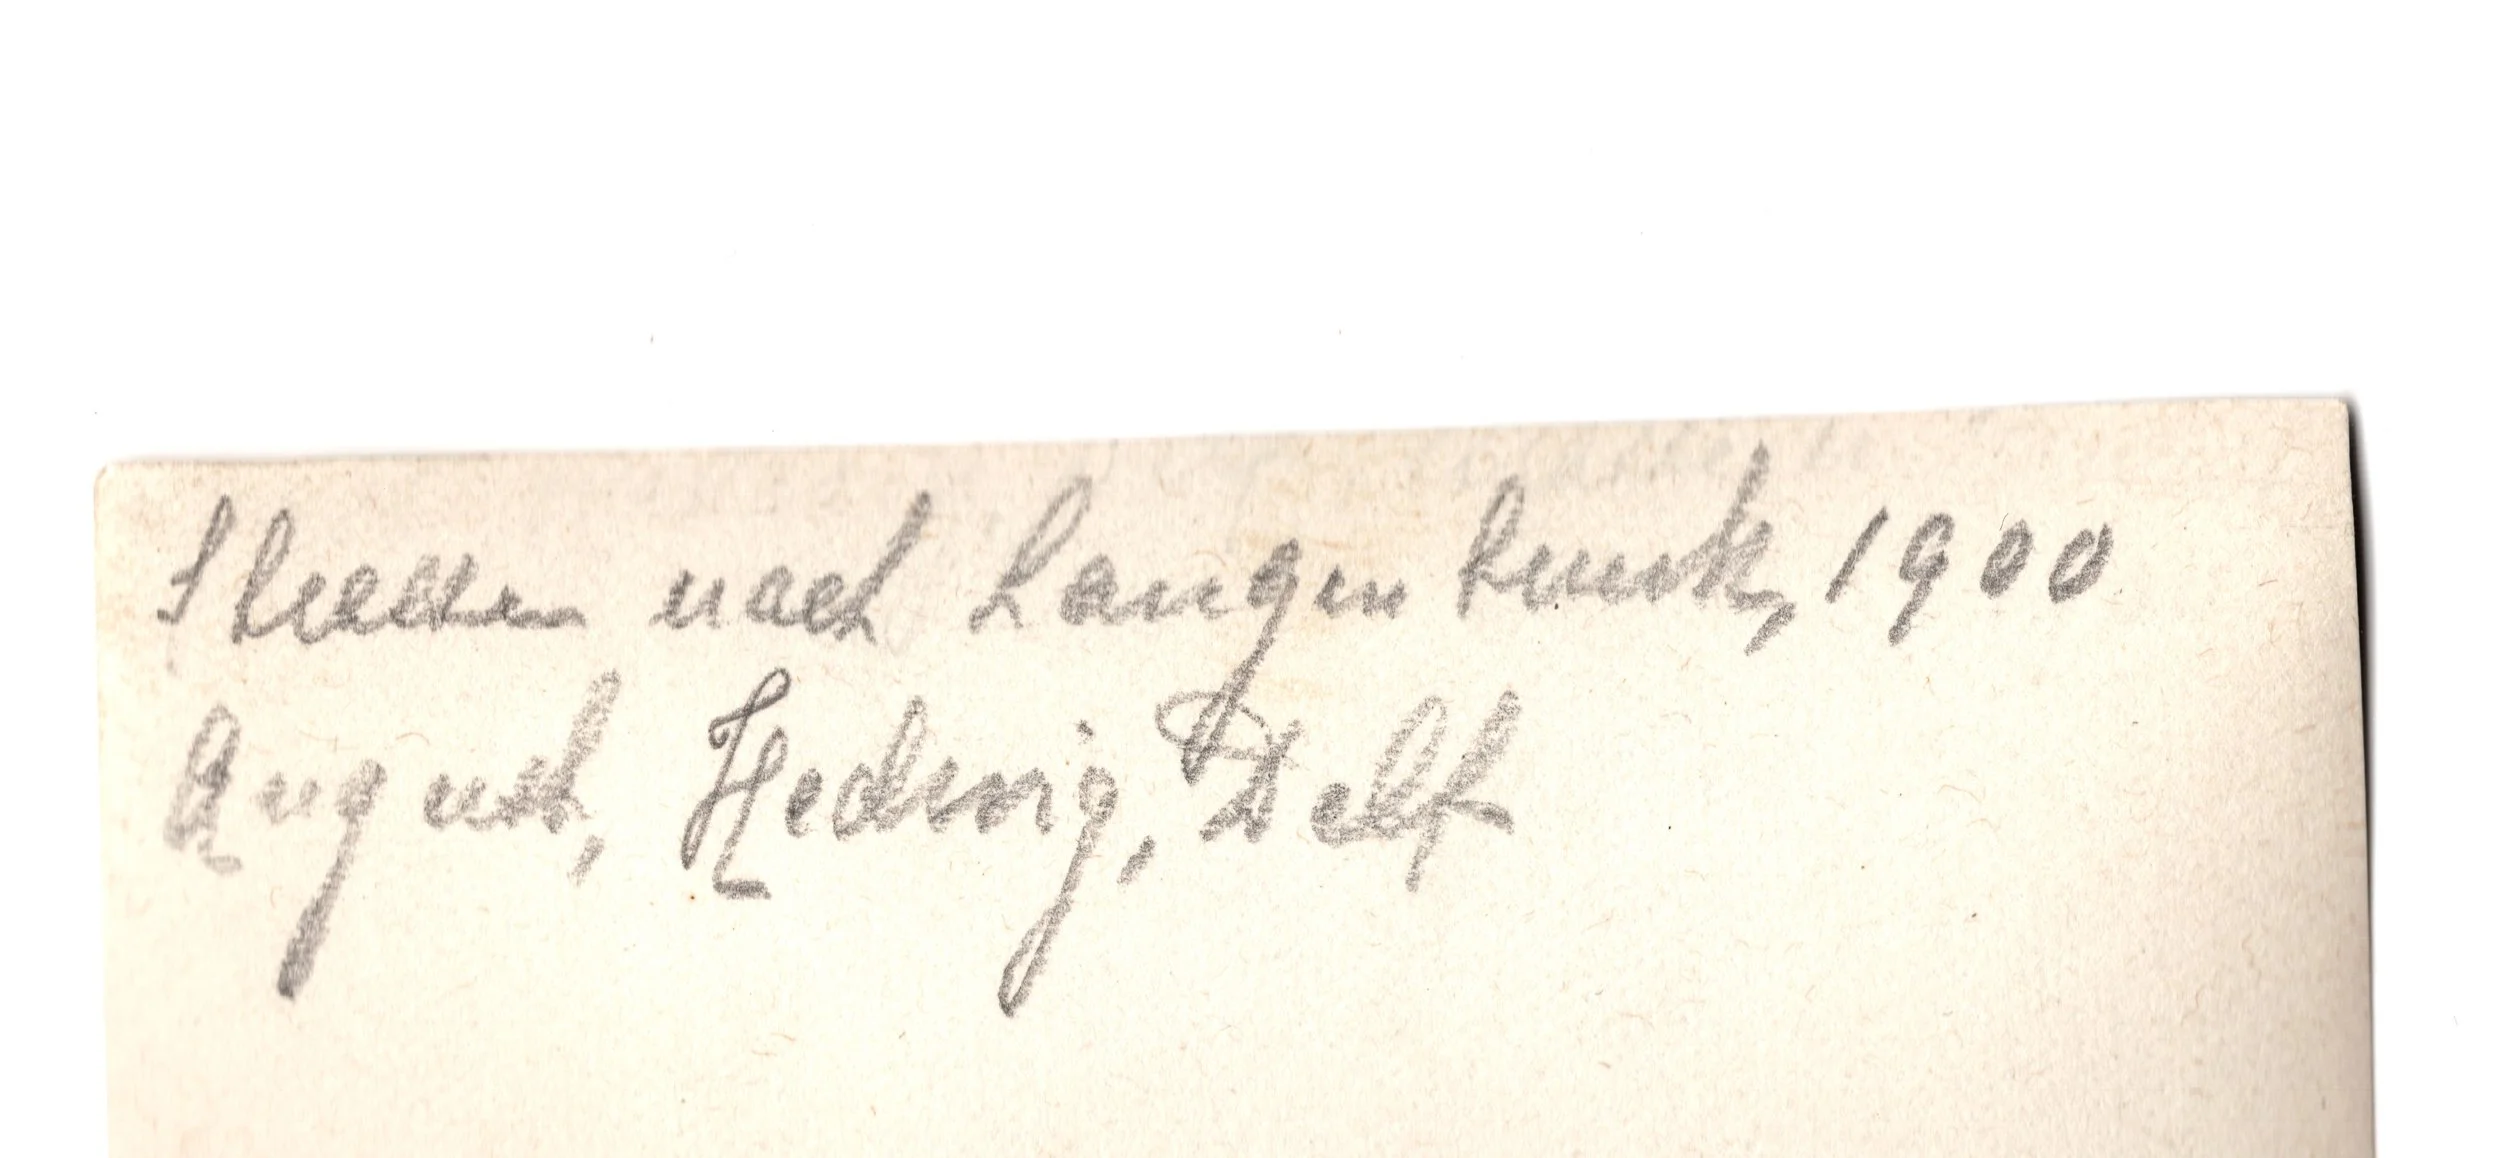 nach Langenbruck, 1900
August, Hedwig, Detlf